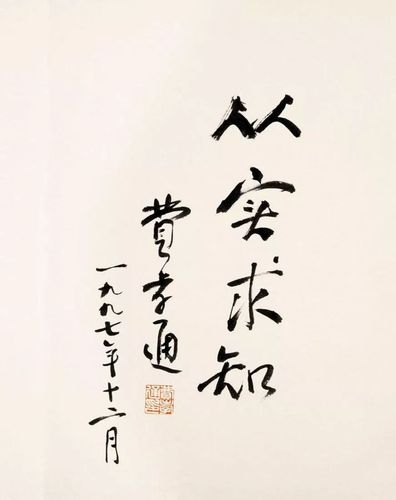 从实求知
费孝通
一九九七年十二月